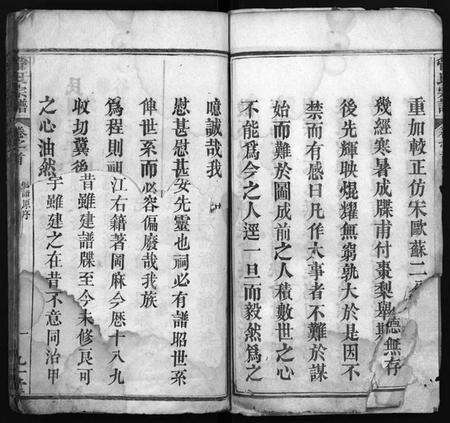 重加較正仿宋歐蘇二
幾經寒暑成牒甫付棗梨舉
德無存
後先輝映焜耀無窮孰大於是因不
禁而有感曰凡作大事者不難於謀
始而難於圖成前之人積數世之心
不能為今之人遲一旦而毅然為之
噫誠哉我
慰甚慰甚
安先靈也祠必有譜昭世系
俾世系而
必容偏廢哉我族
為程則祠
江右籍著岡麻今歷十八九
收切冀後
昔雖建譜牒至今未修良可
之心油然
字雖建之在昔不意同治甲
氏宗譜
卷之首